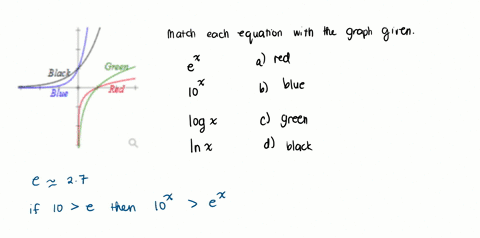 Match each equation with the graph given.
e^x a) red
10^x b) blue
log x c) green
ln x d) black
Black
Blue
Green
Red
e ≈ 2.7
if 10 > e then 10^x > e^x